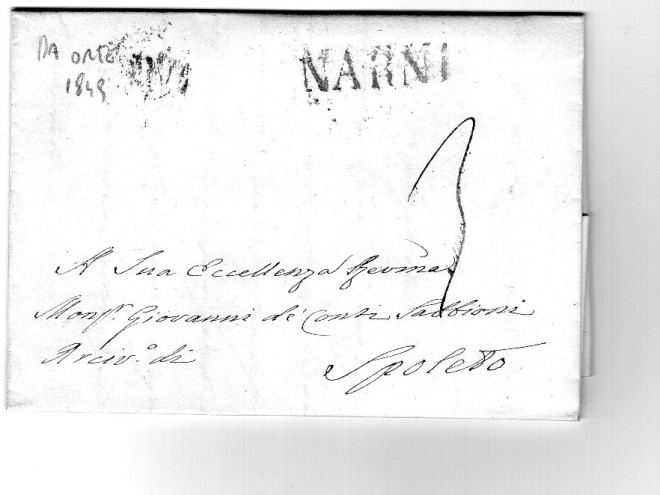 DA ORTE
1849
NARNI
3
A Sua Eccellenza Revma
Monsr. Giovanni de' Conti Sabbioni
Arcivo. di
Spoleto